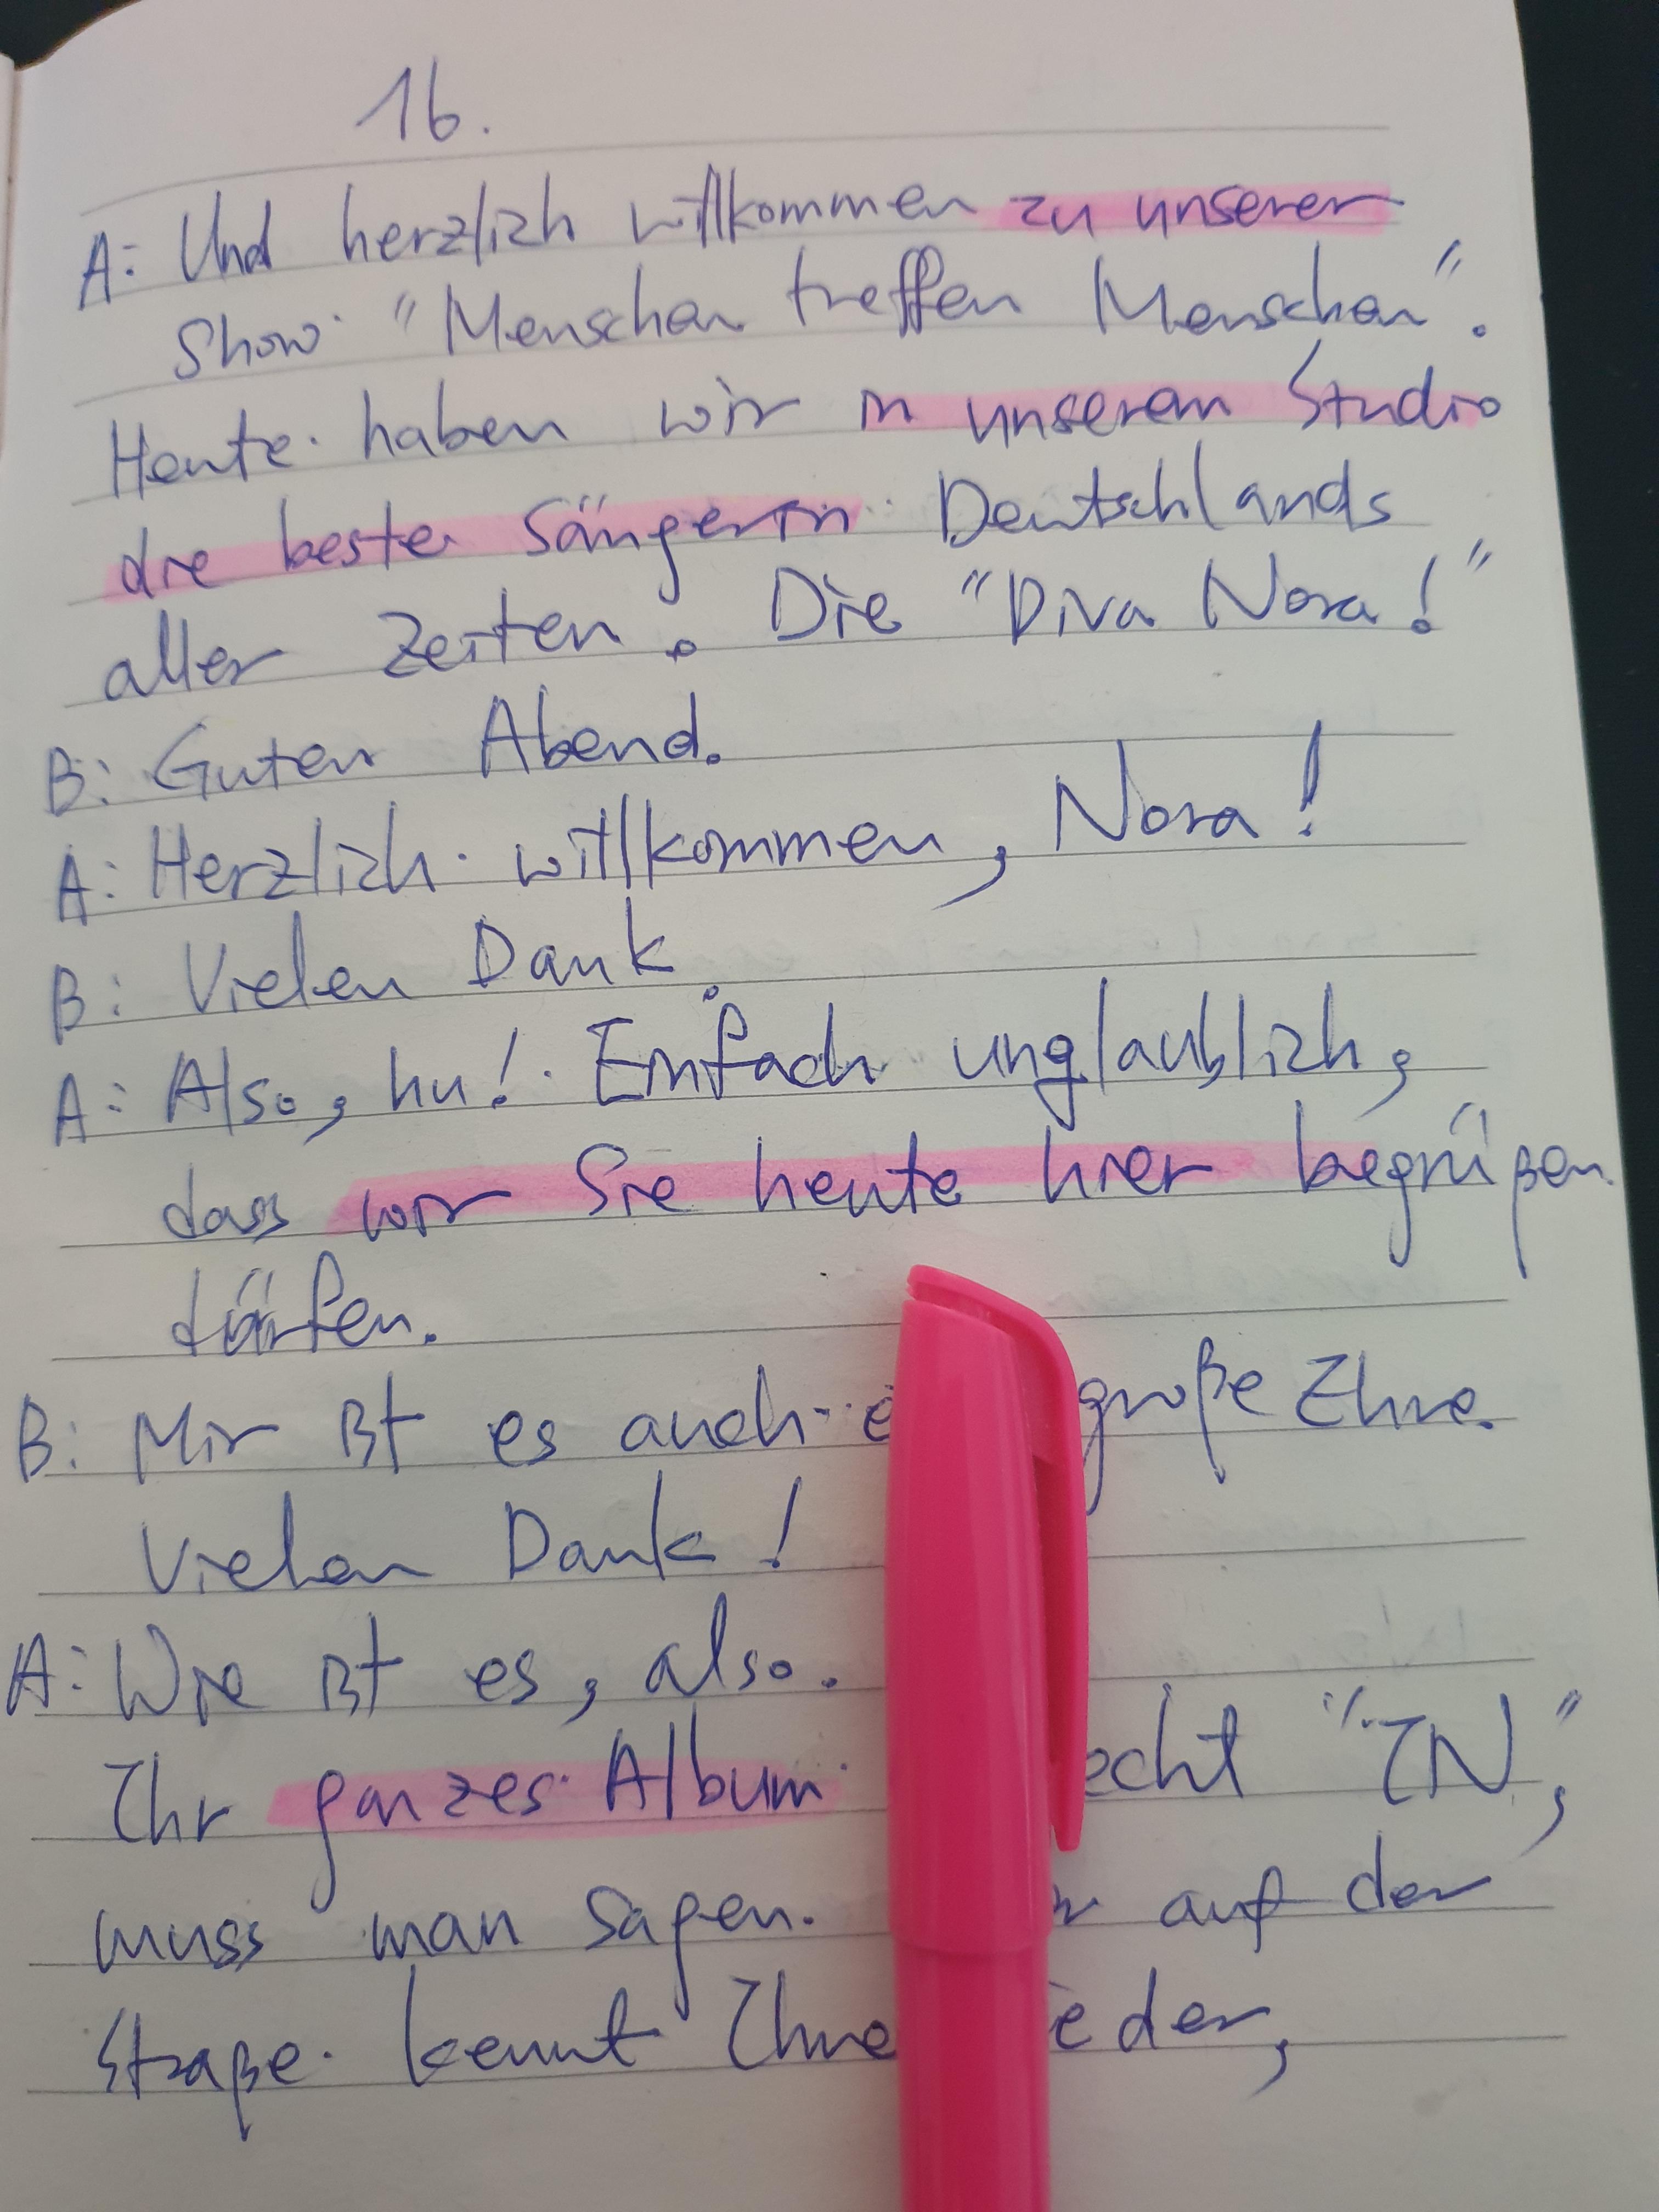 16.
A: Und herzlich willkommen zu unserer
Show "Menschen treffen Menschen".
Heute haben wir in unserem Studio
die beste Sängerin Deutschlands
aller Zeiten. Die "Diva Nora!"
B: Guten Abend.
A: Herzlich willkommen, Nora!
B: Vielen Dank.
A: Also, hu! Einfach unglaublich,
dass wir Sie heute hier begrüßen
dürfen.
B: Mir ist es auch große Ehre.
Vielen Dank!
A: Wie ist es, also.
Ihr ganzes Album "IN",
muss man sagen. auf der
Straße kennt Ihre